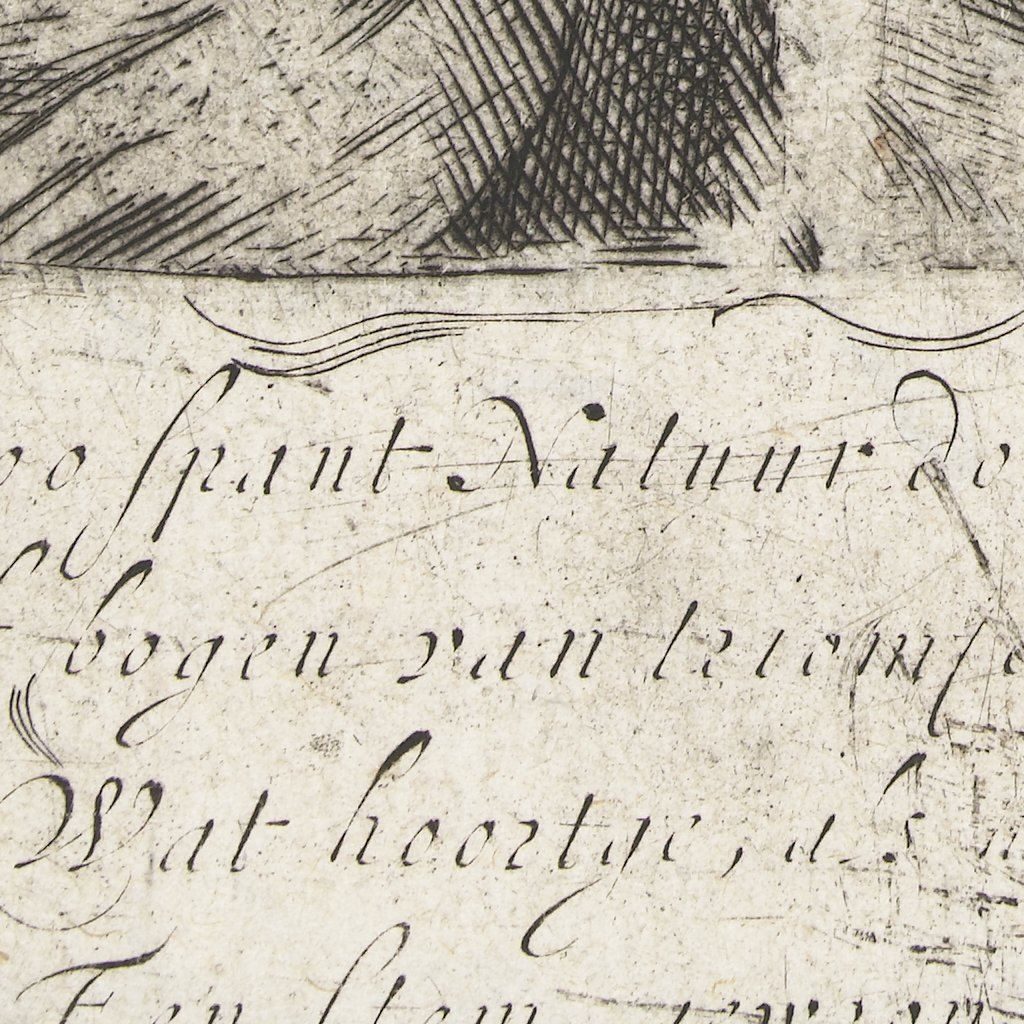 oo spant Natuur de
bogen van leiems
Wat hoortge, als
Een stem